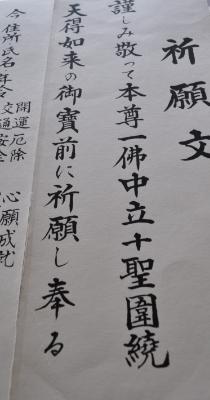 祈願文
謹しみ敬って本尊一佛中立十聖圍繞
天得如来の御寶前に祈願し奉る
今住所氏名年令
開運厄除
交通安全
心願成就